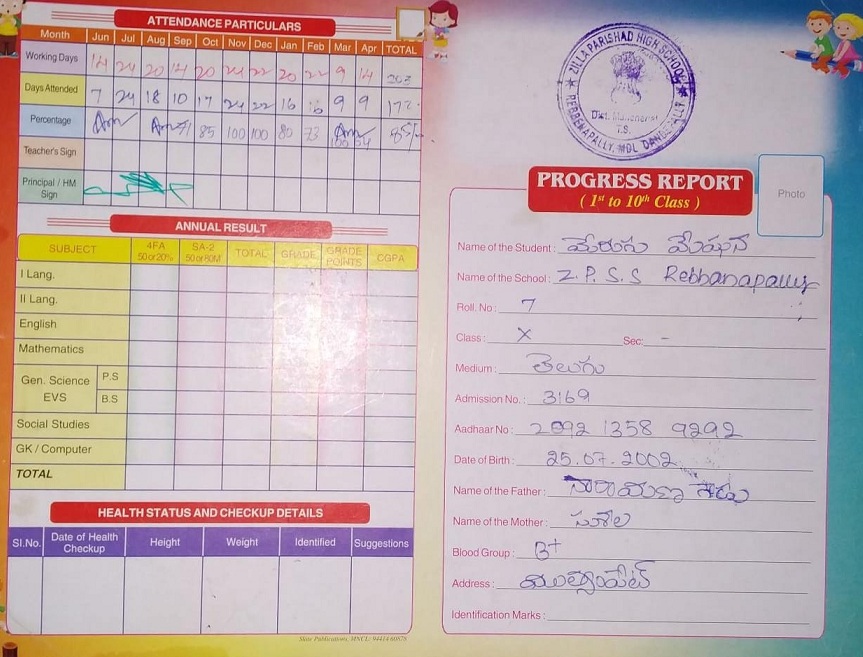 ATTENDANCE PARTICULARS
Month Jun Jul Aug Sep Oct Nov Dec Jan Feb Mar Apr TOTAL
Working Days 14 24 20 14 20 24 22 20 22 9 14 203
Days Attended 7 24 18 10 17 24 22 16 16 9 9 172
Percentage 71 85 100 100 80 73 100 64 85%
Teacher's Sign
Principal / HM Sign
ANNUAL RESULT
SUBJECT 4FA 50 or 20% SA-2 50 or 80M TOTAL GRADE GRADE POINTS CGPA
I Lang.
II Lang.
English
Mathematics
Gen. Science EVS P.S
B.S
Social Studies
GK / Computer
TOTAL
HEALTH STATUS AND CHECKUP DETAILS
Sl.No. Date of Health Checkup Height Weight Identified Suggestions
Slate Publications, MNCL: 94414 60878
ZILLA PARISHAD HIGH SCHOOL
Dist. Mancherial
T.S.
REBBENAPALLY, MDL DANDEPALLY
PROGRESS REPORT
( 1st to 10th Class )
Photo
Name of the Student : మేరుగు మేఘన
Name of the School : Z.P.S.S Rebbanapally
Roll. No : 7
Class : X Sec: -
Medium : తెలుగు
Admission No. : 3169
Aadhaar No : 2092 1358 9292
Date of Birth : 25.07.2002
Name of the Father : నారాయణ గౌడు
Name of the Mother : సుశీల
Blood Group : B+
Address : ముత్యంపేట్
Identification Marks :